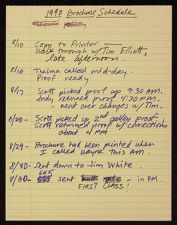 1998 Brochure Schedule
8/10 Copy to Printer —
Walk through w/ Tim Elliott,
late afternoon.
8/16 Thelma called mid-day.
Proof ready
8/17 Scott picked up 9:30 A.M.
Judy returned proof 4:30 P.M.
- went over changes w/ Tim.
8/20 - Scott picked up 2nd proof
Scott returned proof w/ corrections
about 4 PM
8/29 - Brochure had been printed when
I called Wayne this AM.
8/30 - Sent down to Jim White
8/30 - 645 sent - in P.M.
FIRST CLASS!